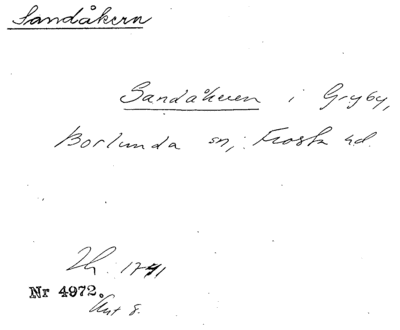 Sandåkern
Sandåkeren i Gryby,
Borlunda sn, Frosta hd.
Lh. 1741
Nr 4972.
Akt 8.